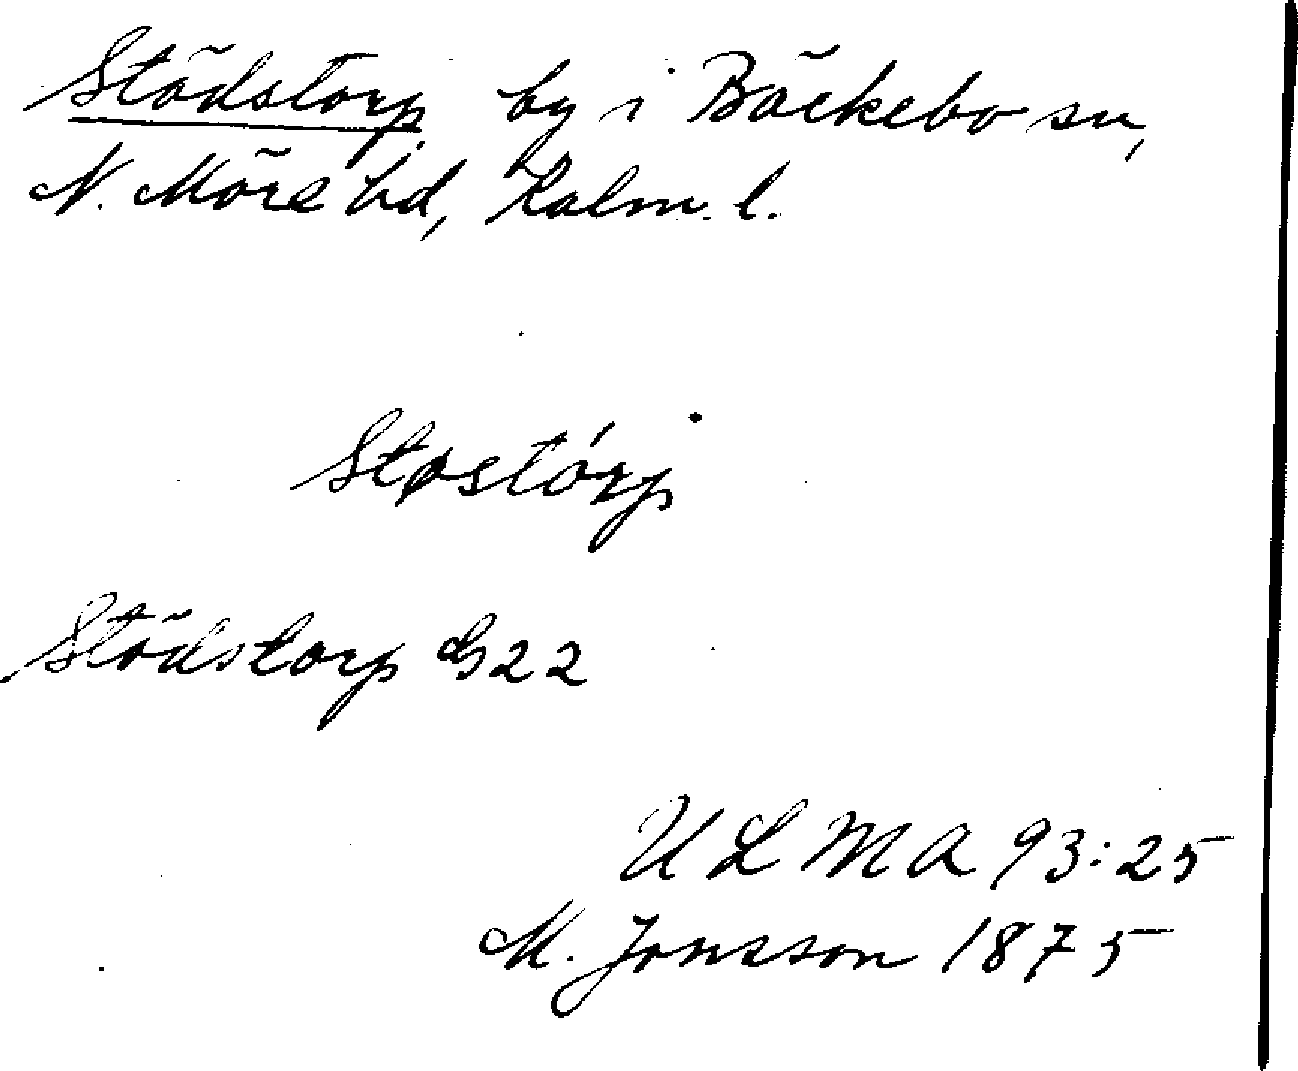 Stödstorp by i Bäckebo sn,
N. Möre hd, Kalm. l.
Støstórp
Stödstorp G22
ULMA 93:25
M. Jonsson 1875